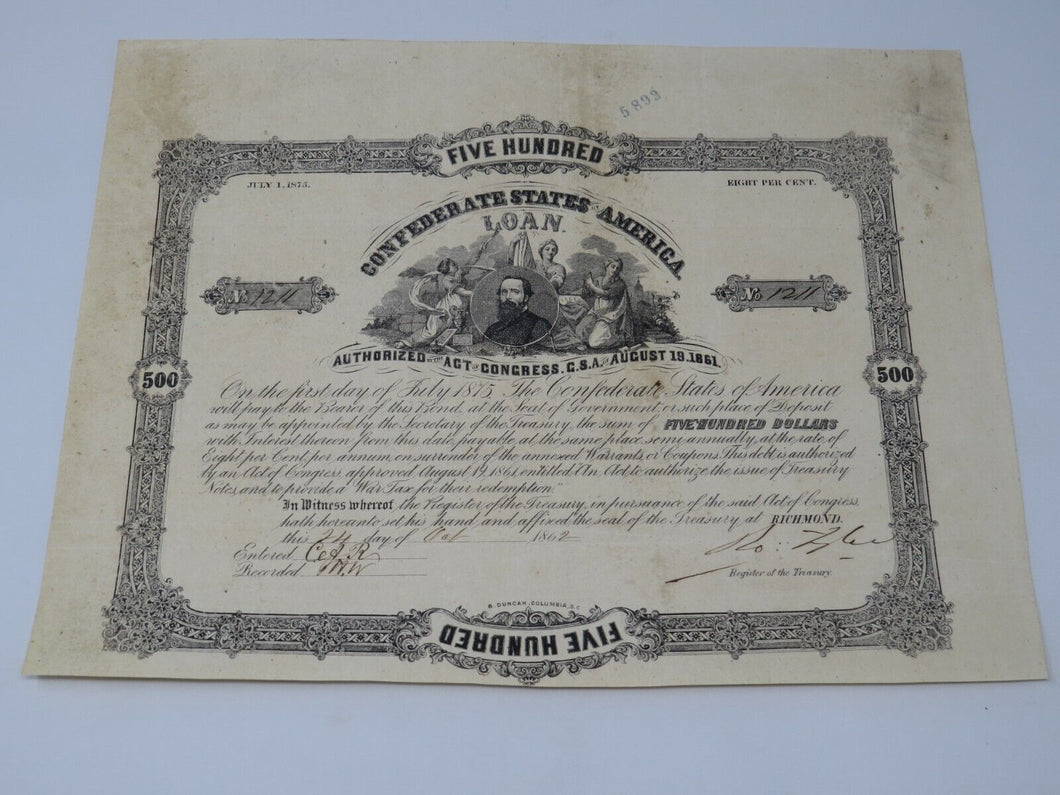 5893
FIVE HUNDRED
JULY 1, 1875.
EIGHT PER CENT.
CONFEDERATE STATES OF AMERICA
LOAN.
No 1211
No 1211
AUTHORIZED BY THE ACT OF CONGRESS, C.S.A. OF AUGUST 19. 1861.
500
500
On the first day of July 1875, The Confederate States of America
will pay to the Bearer of this Bond, at the Seat of Government, or such place of Deposit
as may be appointed by the Secretary of the Treasury, the sum of FIVE HUNDRED DOLLARS
with Interest thereon from this date, payable at the same place semi-annually, at the rate of
Eight per Cent. per annum, on surrender of the annexed Warrants or Coupons. This debt is authorized
by an Act of Congress, approved August 19, 1861, entitled "An Act, to authorize the issue of Treasury
Notes, and to provide a War Tax for their redemption."
In Witness whereof the Register of the Treasury, in pursuance of the said Act of Congress,
hath hereunto set his hand and affixed the seal of the Treasury, at RICHMOND.
this 24 day of Oct 1862
Entered
Recorded
Ro: Tyler
Register of the Treasury.
B. DUNCAN, COLUMBIA, S.C.
FIVE HUNDRED